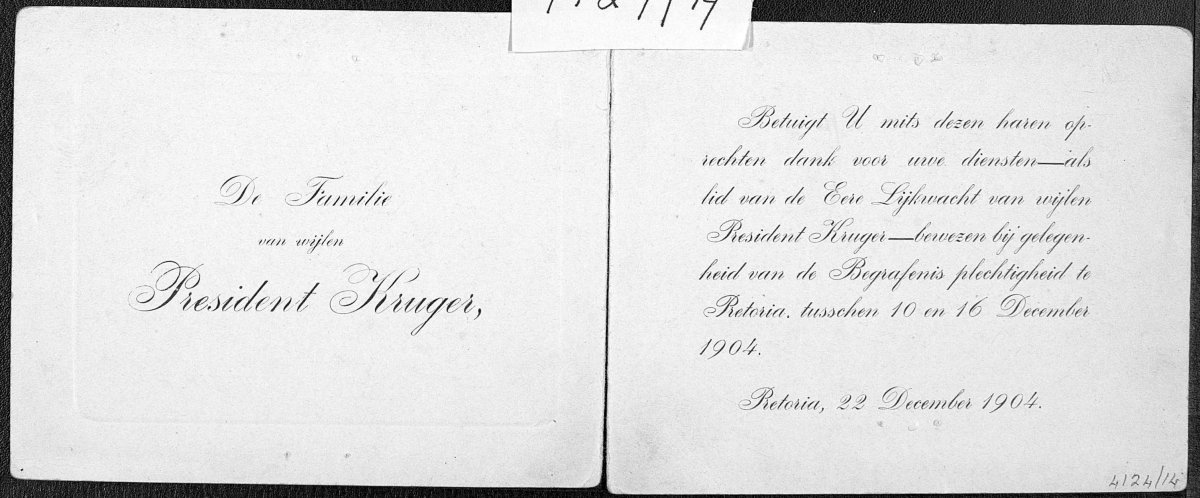 De Familie
van wijlen
President Kruger,
Betuigt U mits dezen haren op-
rechten dank voor uwe diensten—als
lid van de Eere Lijkwacht van wijlen
President Kruger—bewezen bij gelegen-
heid van de Begrafenis plechtigheid te
Pretoria, tusschen 10 en 16 December
1904.
Pretoria, 22 December 1904.
4124/14